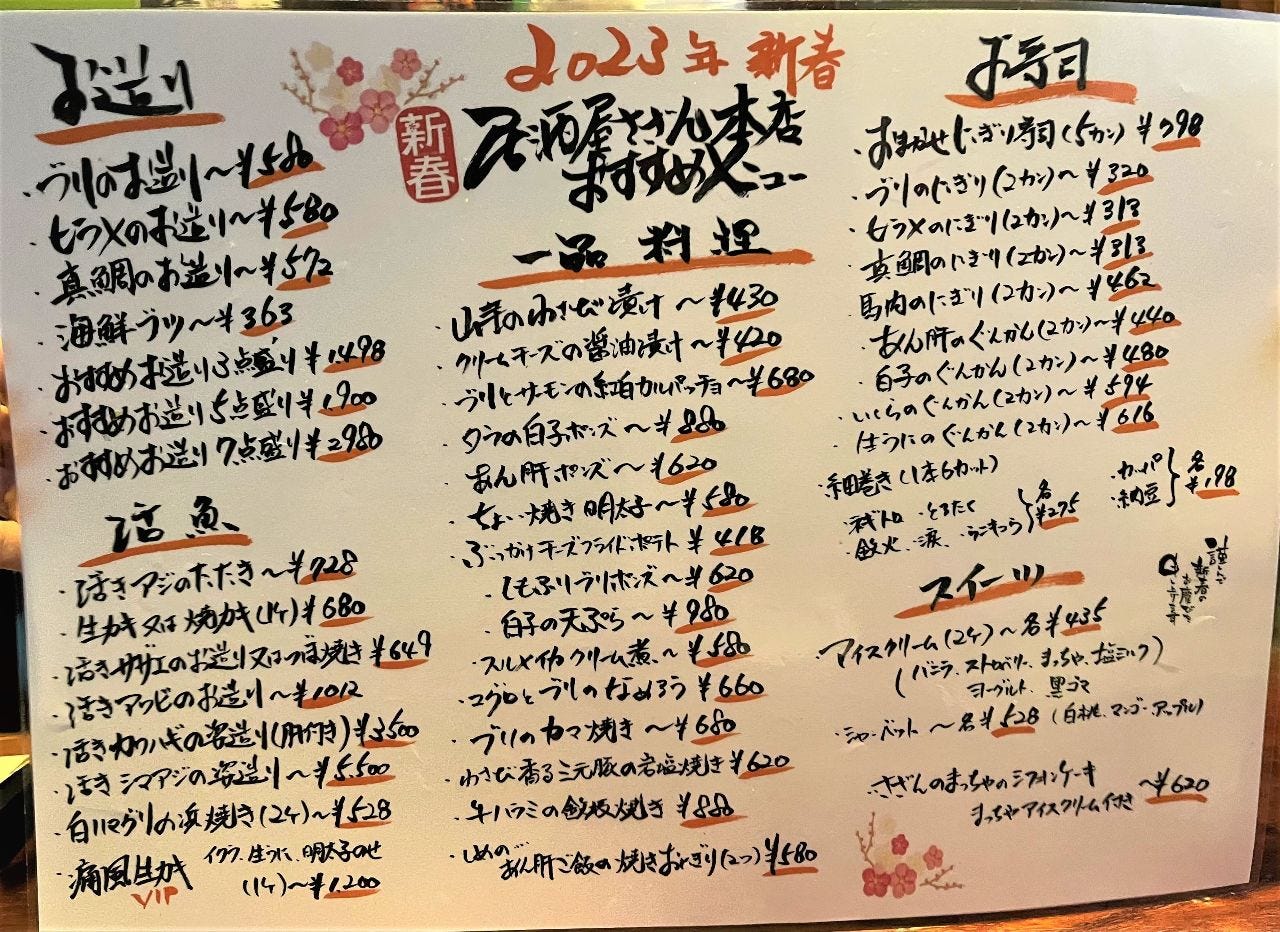 2023年 新春
新春
居酒屋さざん本店
おすすめメニュー
お造り
・ブリのお造り〜¥580
・ヒラメのお造り〜¥580
・真鯛のお造り〜¥572
・海鮮ブツ〜¥363
・おすすめお造り3点盛り¥1,498
・おすすめお造り5点盛り¥1,900
・おすすめお造り7点盛り¥2980
活魚
・活きアジのたたき〜¥728
・生カキ又は焼カキ(1ケ)¥680
・活きサザエのお造り又はつぼ焼き¥649
・活きアワビのお造り〜¥1012
・活きカワハギの姿造り(肝付き)¥3,500
・活きシマアジの姿造り〜¥5,500
・白ハマグリの浜焼き(2ケ)〜¥528
・痛風生カキ イクラ、生うに、明太子のせ
VIP (1ケ)〜¥1,200
一品料理
・山芋のわさび漬け〜¥430
・クリームチーズの醤油漬け〜¥420
・ブリとサーモンの和風カルパッチョ〜¥680
・タラの白子ポンズ〜¥880
・あん肝ポンズ〜¥620
・ちょい焼き明太子〜¥580
・ぶっかけチーズフライドポテト¥418
・しもふりブリポンズ〜¥620
・白子の天ぷら〜¥980
・スルメイカクリーム煮〜¥580
・マグロとブリのなめろう¥660
・ブリのカマ焼き〜¥680
・わさび香る三元豚の岩塩焼き¥620
・牛ハラミの鉄板焼き¥880
・しめのあん肝ご飯の焼きおにぎり(2つ)¥580
お寿司
・おまかせにぎり寿司(5カン)¥798
・ブリのにぎり(2カン)〜¥320
・ヒラメのにぎり(2カン)〜¥313
・真鯛のにぎり(2カン)〜¥313
・馬肉のにぎり(2カン)〜¥462
・あん肝のぐんかん(2カン)〜¥440
・白子のぐんかん(2カン)〜¥480
・いくらのぐんかん(2カン)〜¥594
・生うにのぐんかん(2カン)〜¥616
・細巻き(1本6カット)
・ネギトロ・とろたく
・鉄火・涙・うにきゅう 各¥275
・カッパ
・納豆 各¥198
謹んで
新春の
お慶びを
申し上げます
スイーツ
・アイスクリーム(2ケ)〜各¥435
(バニラ、ストロベリー、まっちゃ、塩ミルク
ヨーグルト、黒ゴマ)
・シャーベット〜各¥528(白桃、マンゴー、アップル)
・さざんのまっちゃのシフォンケーキ
まっちゃアイスクリーム付き〜¥620